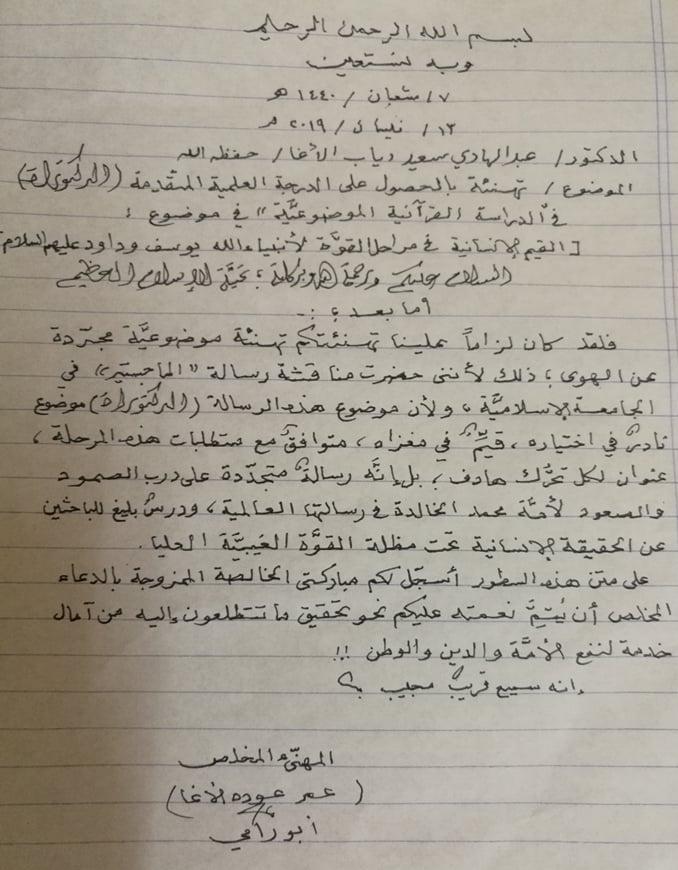 بسم الله الرحمن الرحيم
وبه نستعين
٧/ شعبان / ١٤٤٠ هـ
١٣/ نيسان / ٢٠١٩ م
الدكتور/ عبد الهادي سعيد دياب الأغا/ حفظه الله
الموضوع / تهنئة بالحصول على الدرجة العلمية المتقدمة (الدكتوراة)
في "الدراسة القرآنية الموضوعيَّة" في موضوع :
[ القيم الإنسانية في مراحل القوَّة لأنبياء الله يوسف وداود عليهم السلام ]
السلام عليكم ورحمة الله وبركاته ؛ تحيَّة الإسلام العظيم
أما بعد ؛ :-
فلقد كان لزاماً علينا تهنئتكم تهنئة موضوعيَّة مجرّدة
عن الهوى ؛ ذلك لأنني حضرت مناقشة رسالة "الماجستير" في
الجامعة الإسلاميَّة ، ولأن موضوع هذه الرسالة (الدكتوراة) موضوع
نادرٌ في اختياره ، قيِّمٌ في مغزاه ، متوافقٌ مع متطلبات هذه المرحلة ،
عنوان لكل تحرُّك هادف ؛ بل إنَّه رسالةٌ متجدّدة على درب الصمود
والصعود لأمَّة محمد الخالدة في رسالتها العالمية ، ودرسٌ بليغ للباحثين
عن الحقيقة الإنسانية تحت مظلة القوَّة الغيبيَّة العليا.
على متن هذه السطور أسجّل لكم مباركتي الخالصة الممزوجة بالدعاء
المخلص أن يُتِمَّ نعمته عليكم نحو تحقيق ما تتطلعون إليه من آمال
خدمة لنفع الأمَّة والدين والوطن !!
إنه سميع قريبٌ مجيب
المهنّىء المخلص
( عمر عوده الأغا )
أبو رامي